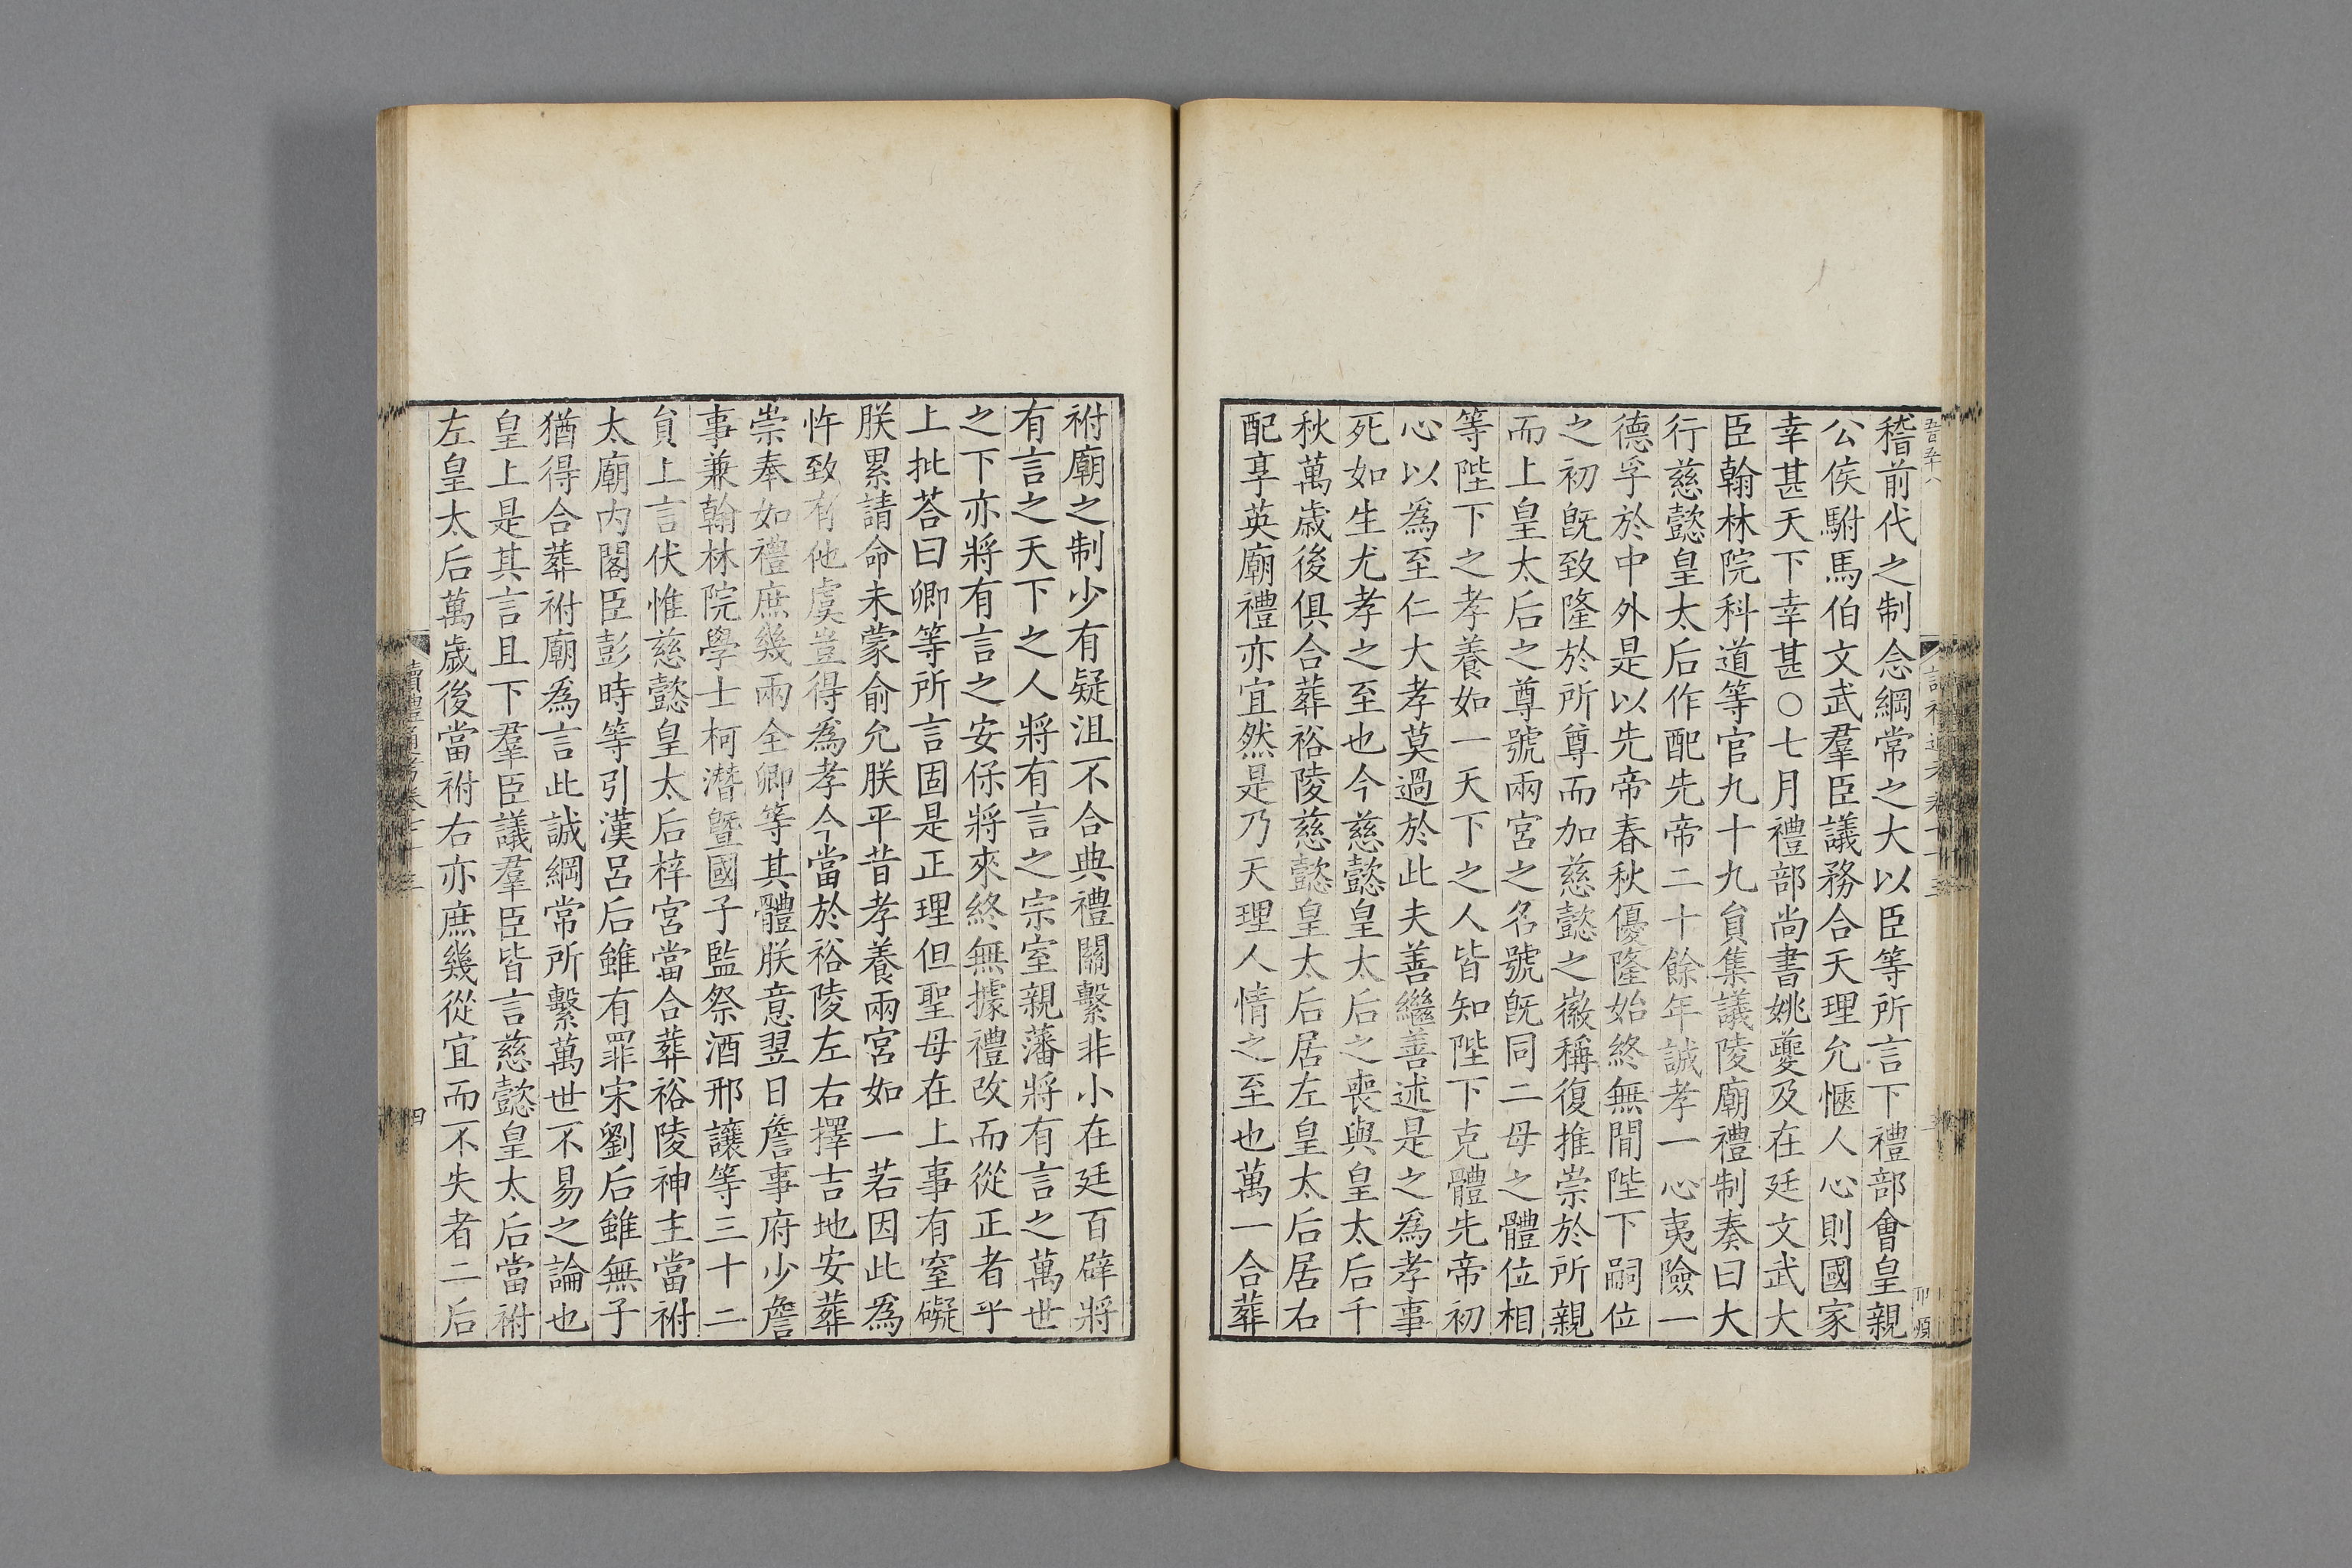 稽前代之制念綱常之大以臣等所言下禮部會皇親
公侯駙馬伯文武羣臣議務合天理允愜人心則國家
幸甚天下幸甚○七月禮部尚書姚夔及在廷文武大
臣翰林院科道等官九十九員集議陵廟禮制奏曰大
行慈懿皇太后作配先帝二十餘年誠孝一心夷險一
德孚於中外是以先帝春秋優隆始終無間陛下嗣位
之初旣致隆於所尊而加慈懿之徽稱復推崇於所親
而上皇太后之尊號兩宮之名號旣同二母之體位相
等陛下之孝養如一天下之人皆知陛下克體先帝初
心以爲至仁大孝莫過於此夫善繼善述是之爲孝事
死如生尤孝之至也今慈懿皇太后之喪與皇太后千
秋萬歲後俱合葬裕陵慈懿皇太后居左皇太后居右
配享英廟禮亦宜然是乃天理人情之至也萬一合葬
祔廟之制少有疑沮不合典禮關繫非小在廷百辟將
有言之天下之人將有言之宗室親藩將有言之萬世
之下亦將有言之安保將來終無據禮改而從正者乎
上批荅曰卿等所言固是正理但聖母在上事有窒礙
朕累請命未蒙俞允朕平昔孝養兩宮如一若因此爲
忤致有他虞豈得爲孝今當於裕陵左右擇吉地安葬
崇奉如禮庶幾兩全卿等其體朕意翌日詹事府少詹
事兼翰林院學士柯潛曁國子監祭酒邢讓等三十二
員上言伏惟慈懿皇太后梓宮當合葬裕陵神主當祔
太廟内閣臣彭時等引漢呂后雖有罪宋劉后雖無子
猶得合葬祔廟爲言此誠綱常所繫萬世不易之論也
皇上是其言且下羣臣議羣臣皆言慈懿皇太后當祔
左皇太后萬歲後當祔右亦庶幾從宜而不失者二后
四